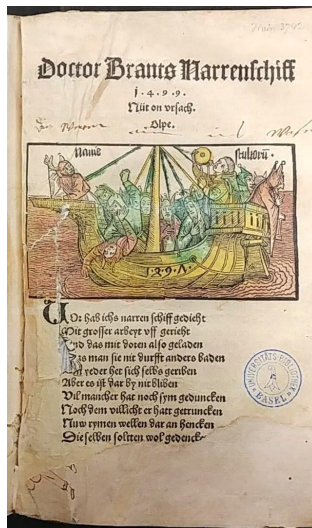 Doctor Brants Narrenschiff
1·4·9·9·
Nüt on vrsach.
Olpe.
Nauis stultorū.
Vor hab ichs narren schiff gedicht
Mit grosser arbeyt vff gericht
Vnd das mit doren also geladen
Das man sie nit durfft anders baden
yeder het sich selbs geriben
Aber es ist dar by nit bliben
Vil mancher hat noch sym geduncken
Noch dem villicht er hatt getruncken
Nuw rymen wellen dar an hencken
Die selben soltten wol gedencke
UNIVERSITÄTS-BIBLIOTHEK BASEL